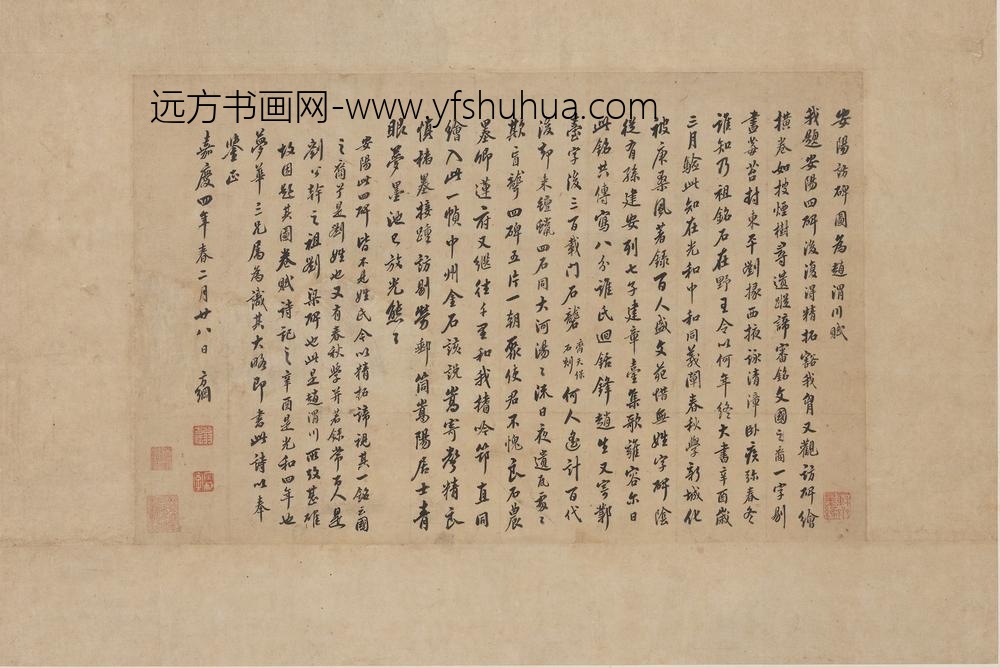 远方书画网-www.yfshuhua.com
安陽訪碑圖為趙渭川賦
我題安陽四碑後復得精拓豁我胷又觀訪碑繪
橫卷如披煙樹尋遺蹤諦審銘文國之裔一字剔
書莓苔封東平劉掾西掖詠清漳臥疾旅春冬
誰知乃祖銘石在野王令以何年終大書辛酉歲
三月驗此知在光和中和同義闡春秋學新城化
被庚桑風著錄百人盛文苑惜無姓字碑陰
從有孫建安列七子建章臺集歌雝容尔日
此銘共傳寫八分誰氏迴銛鋒趙生又寄鄴
臺字後三百載門石礱齊天保石刻何人密計百代
後却來纏蠟四石同大河湯湯流日夜遺瓦處處
欺盲聾四碑五片一朝聚使君不愧良石農
墨卿蓮府又繼往千里和我撎吟筇直同
繪入此一幀中州金石該說嵩寄聲精良
慎楮墨接踵訪剔勞郵筒嵩陽居士青
眼夢墨池已放光熊熊
安陽此四碑皆不見姓氏今以精拓諦視其一銘云國
之裔兮是劉姓也又有春秋學并若錄常百人是
劉公幹之祖劉梁碑也此是趙渭川所致其碓
故因題其圖卷賦詩記之辛酉是光和四年也
夢華三兄屬為識其大略即書此詩以奉
鑒正
嘉慶四年春二月廿八日方綱